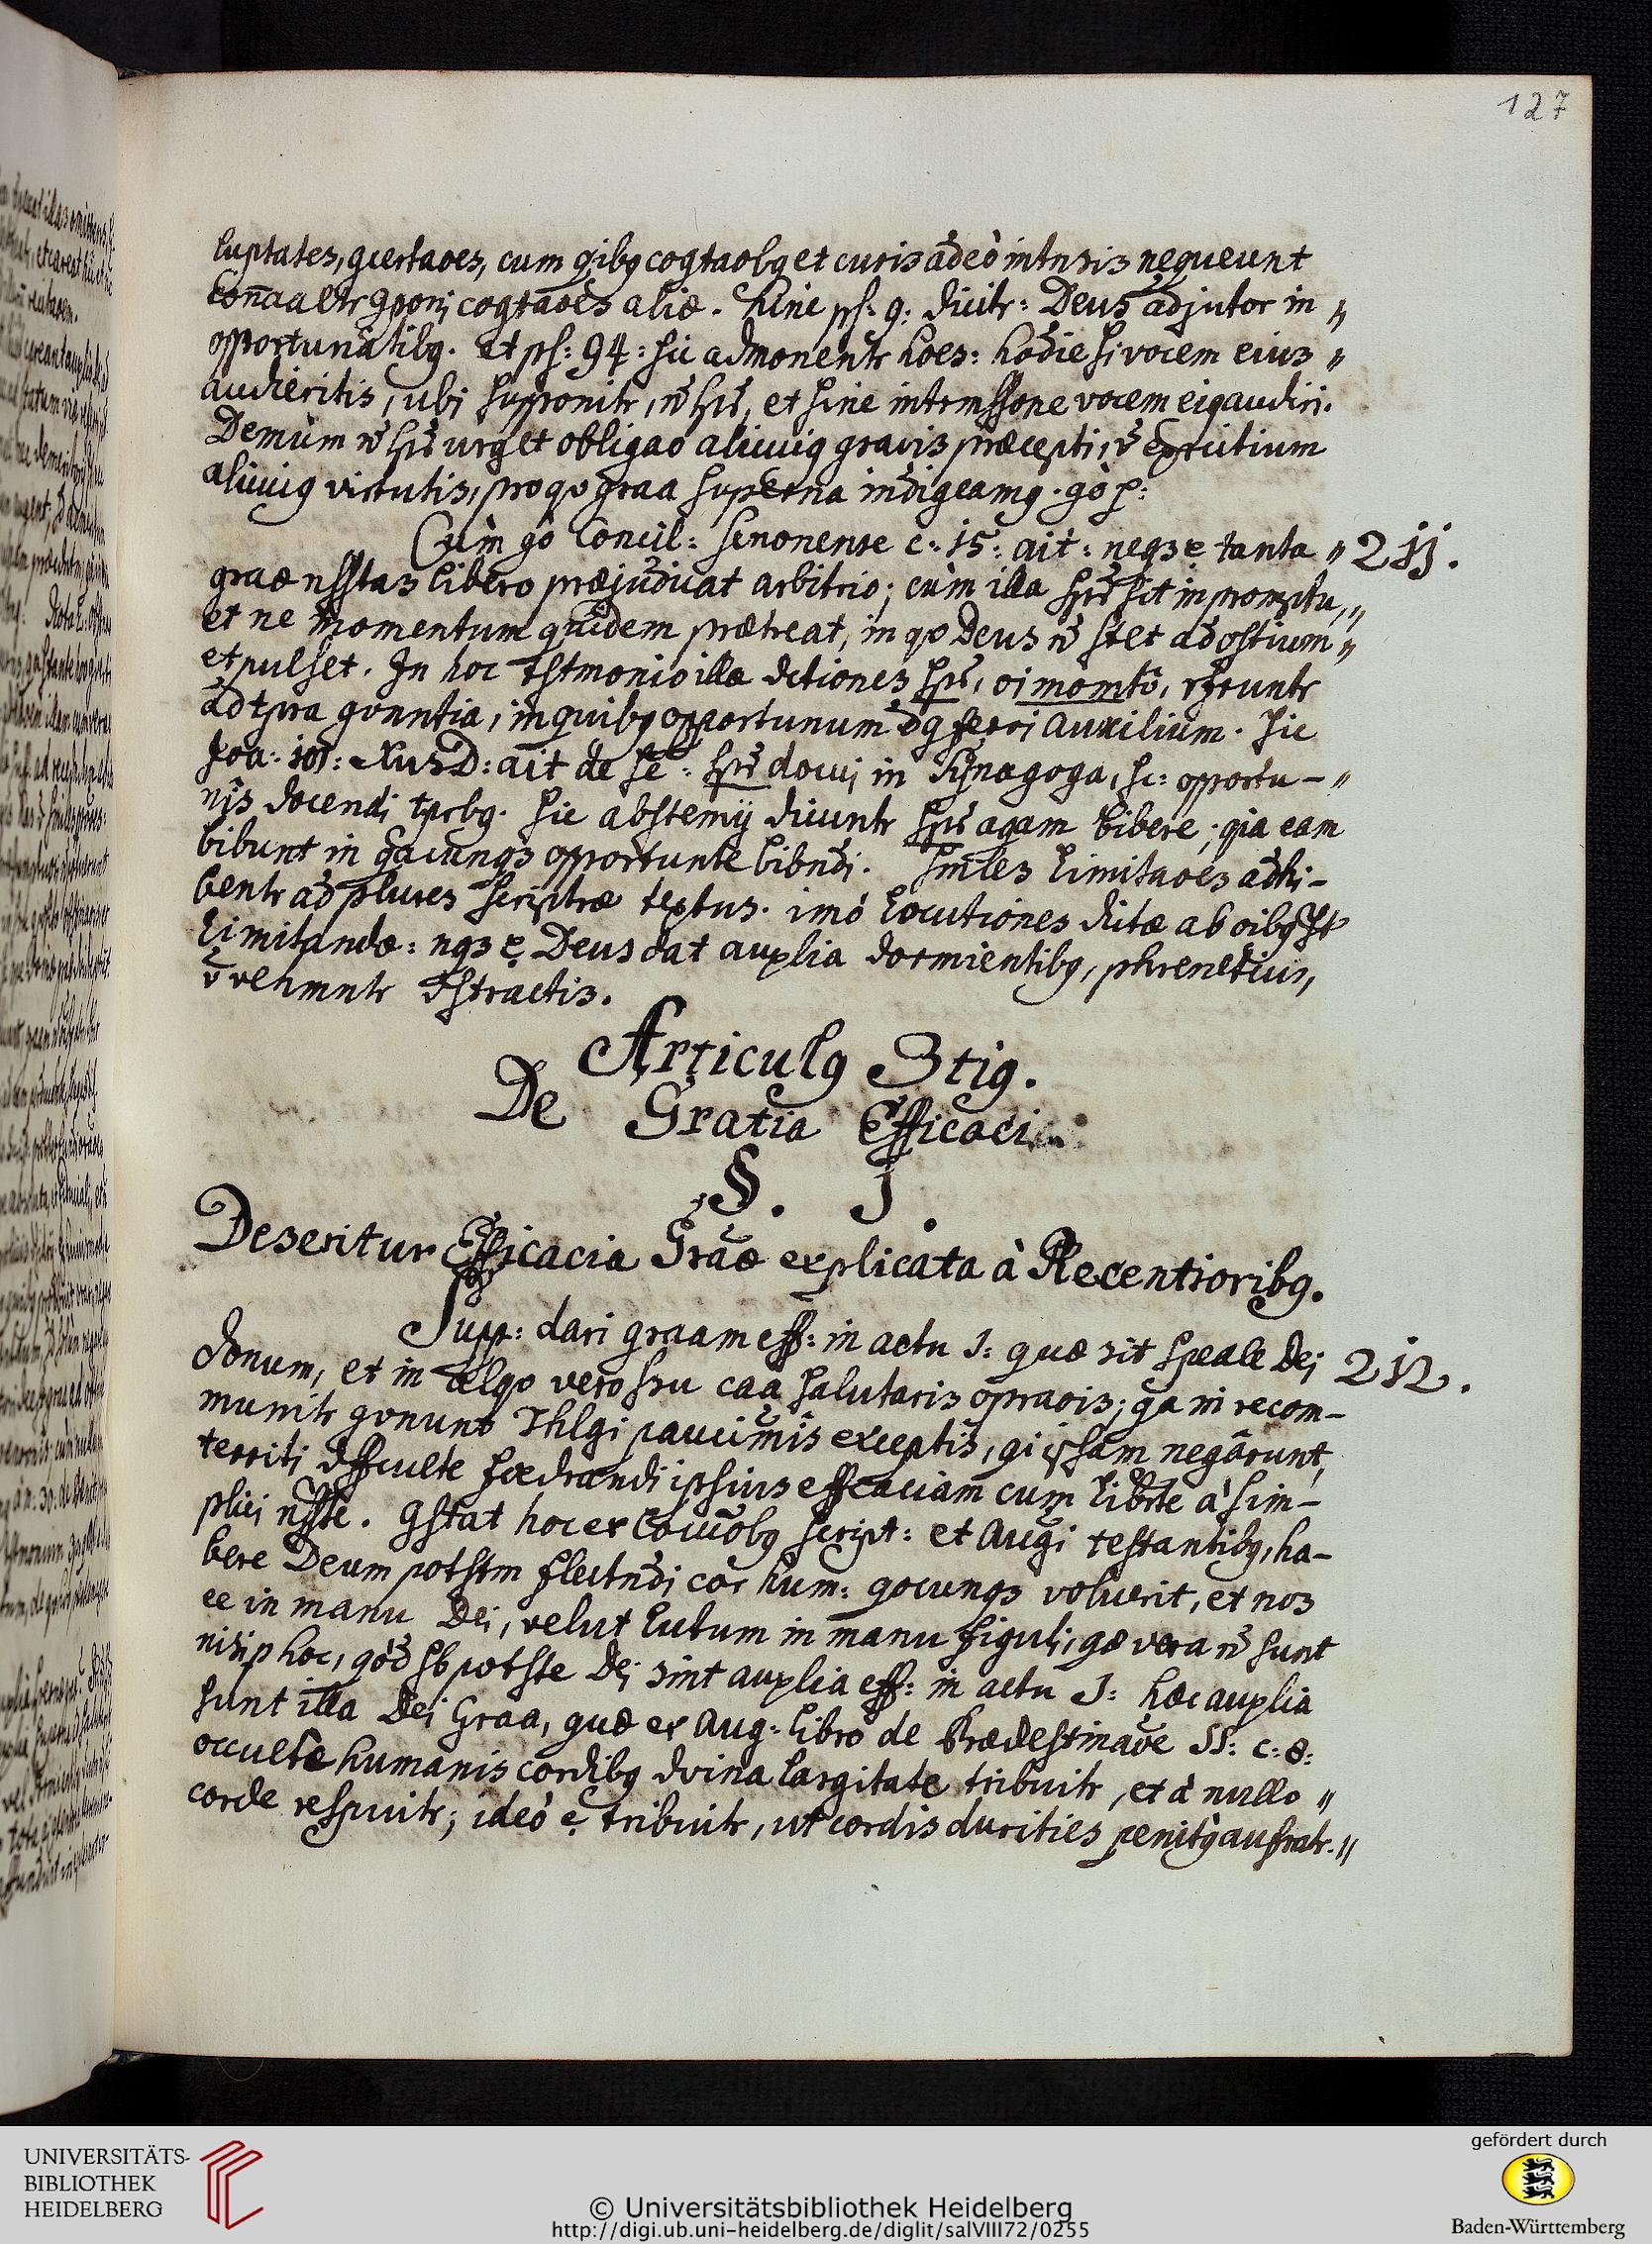 127
luptates, gcertaoes, cum qibg cogtaobg et curis adeò intnsis nequeunt
cogtaoes aliæ. Hinc ps. 9: dicitr: Deus adjutor in "
opportunatibg. Et ps: 94: sic admonentr hoes: hodie si vocem eius "
audieritis, ubi supponitr, et sine intrmssone vocem eig audiri.
Demùm urget obligao alicuig gravis præcepti, exrcitium
alicuig virtutis, pro qo graa superna indigeamg. gò p:
Cùm gò Concil: Senonense c: 15: ait: neqз ẹ tanta " 211.
graæ nsstas libero præjudicat arbitrio; cùm illa sit in promptu, "
et ne momentum quidem prætreat, in qo Deus stet ad ostium "
et pulset. In hoc tstmonio illæ dctiones oi momto, rfruntr
ad tpra gvnntia, in quibg opportunum ferri auxilium. Sic
Joa: 18: Xus D: ait de se: docui in Synagoga, sc: opportu- "
nis docendi tprbg. Sic abstemij dicuntr aqam bibere; qia eam
bibunt in qacunqз opportunte bibndi. Smles limitaoes adhi-
bentr ad plures scriptræ textus. imó locutiones dictæ ab oibg st
limitandæ: nqз ẹ Deus dat auxlia dormientibg, phreneticis,
v vehmntr dstractis.
Articulg 3tig.
De Gratia Efficaci
§. 1.
Deseritur Efficacia Graæ explicata à Recentioribg.
Supp: dari graam eff: in actu 1: quæ sit speale Dei 212.
donum, et in alqo vero snu caa salutaris opraois; qam recom-
munitr gvnunt Thlgi paucimis exceptis, qi ipsam negârunt,
territi dffculte foedrandi ipsius effcaciam cum librte à sim-
plici nsste. Gstat hoc ex Script: et Augi testantibg, ha-
bere Deum potstm flectndi cor hum: qocunqз voluerit, et nos
ee in manu Dei, velut lutum in manu figuli, qæ vera sunt
nisi p hoc, qód sb potste Dei sint auxlia eff: in actu 1: hæc auxlia
sunt illa Dei Graa, quæ ex Aug: libro de Prædestinaoe SS: c: 8:
occulte humanis cordibg dvina largitate tribuitr, et à nullo "
corde respuitr; ideò ẹ tribuitr, ut cordis durities penitg aufratr. "
UNIVERSITÄTS-
BIBLIOTHEK
HEIDELBERG
© Universitätsbibliothek Heidelberg
http://digi.ub.uni-heidelberg.de/diglit/salVIII72/0255
gefördert durch
Baden-Württemberg